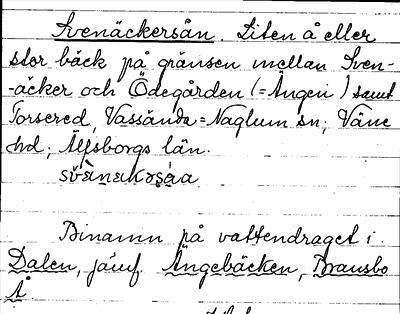 Svenäckersån. Liten å eller
stor bäck på gränsen mellan Sven-
-äcker och Ödegården (= Ängen) samt
Torsered, Vassända=Naglum sn; Väne
hd; Älvsborgs län.
Binamn på vattendraget i
Dalen, jämf. Ängebäcken, Bransbo
Å